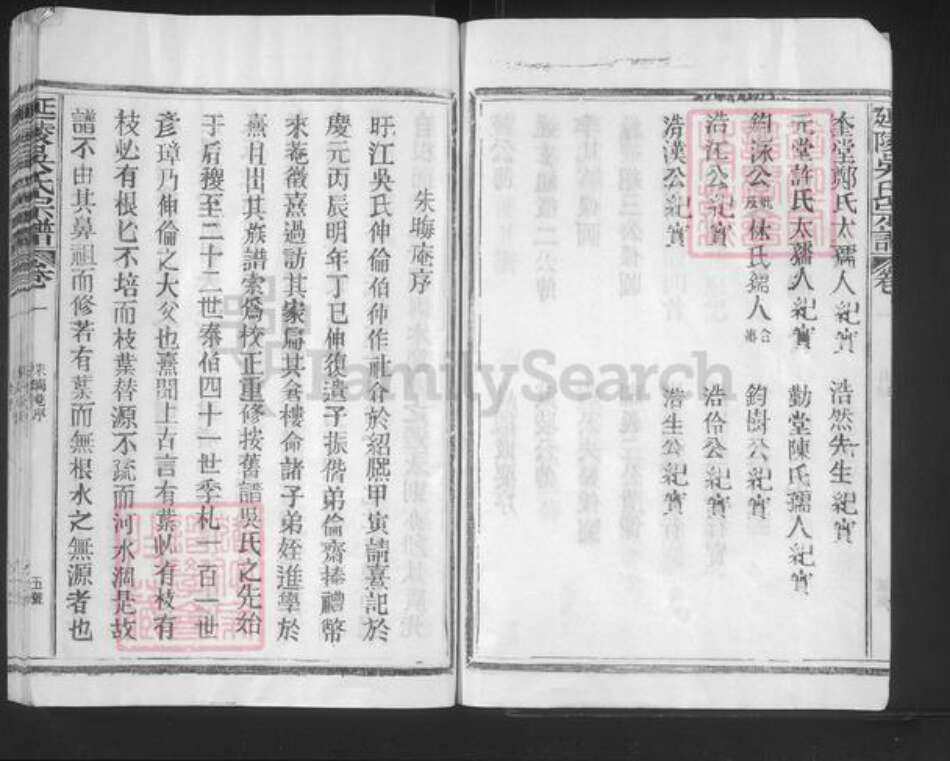 延陵吳氏宗譜 卷
奎堂鄭氏太孺人紀實 浩然先生紀實
元堂許氏太孺人紀實 勤堂陳氏孺人紀實
鈞泳公妣阮林氏孺人合葬 鈞樹公紀實
浩江公紀實 浩伶公紀實
浩漢公紀實 浩生公紀實
朱晦庵序
旴江吳氏伸倫伯仲作社倉於紹熙甲寅請熹記於
慶元丙辰明年丁巳伸復遣子振偕弟倫齋捧禮幣
來菴徵熹過訪其家扁其倉樓命諸子弟姪進學於
熹且出其族譜索爲校正重修按舊譜吳氏之先始
于后稷至二十二世泰伯四十一世季札一百一世
彥璋乃伸倫之大父也熹聞上古言有葉必有枝有
枝必有根匕不培而枝葉替源不疏而河水涸是故
譜不由其鼻祖而修若有葉而無根水之無源者也
延陵吳氏宗譜 卷一
朱晦庵序
五
FamilySearch